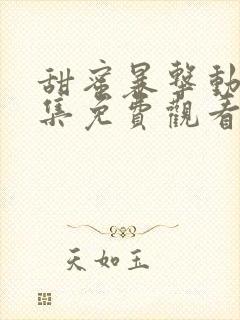 甜蜜暴擊動
集免費觀看
天如玉